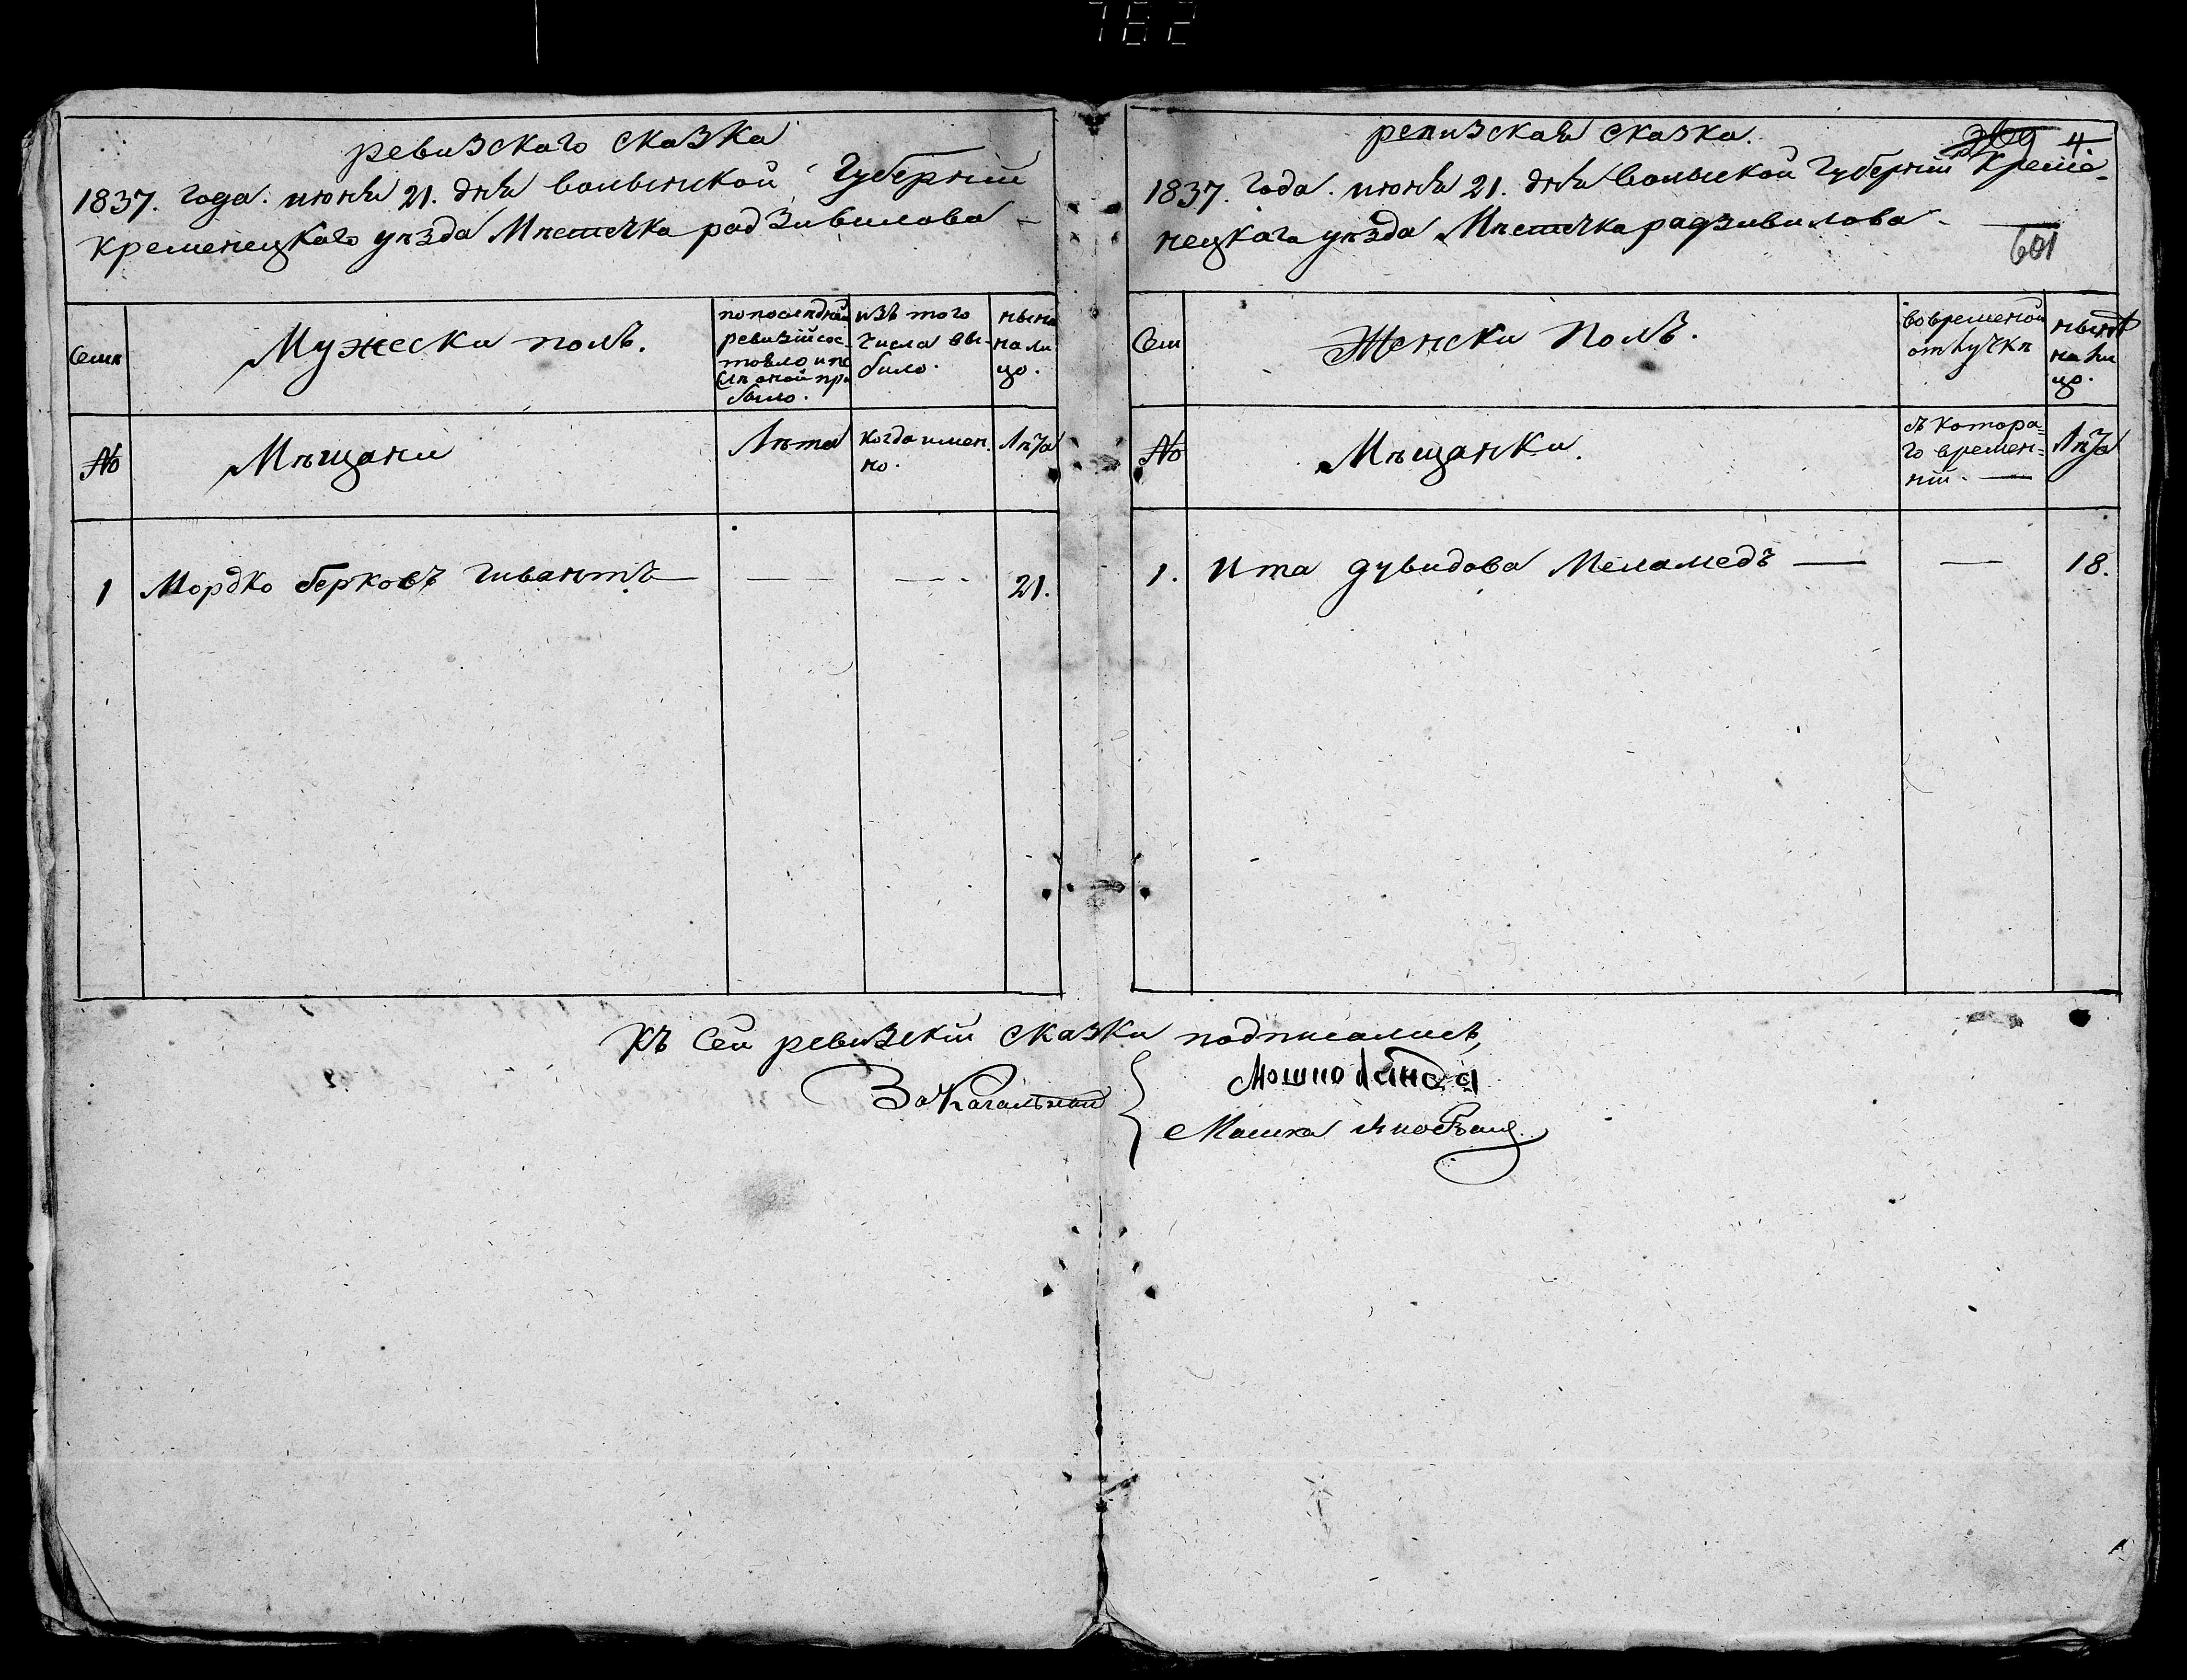 782
ревизского сказка
1837. года. июня 21. дня волынской Губерніи
кременецкаго уѣзда Мѣстечка радзивилова
Семи
Мужески полъ.
попоследней
ревизіи сос-
тояло и по
слѣ оной при
было.
изъ того
числа вы-
било.
ныне
нали
цо.
№
Мѣщани
Лѣта
когда имен
но.
Лѣта
1
Мордко берковъ гивантъ
21.
ревизская сказка.
369 4
1837. года. июня 21. дня волыской Губерніи Креме-
нецкага уѣзда Мѣстечка радзивилова
601
Сем
Женски полъ.
вовременой
отлучкѣ
нынѣ
на ли
цо.
№
Мѣщанки.
съ котора=
го времен=
ніи.
Лѣта
1. Ита дувидова Меламедъ
18.
Къ Сей ревизскіи сказки подписались,
За Кагальнаи
Мошко Ланда
Машка